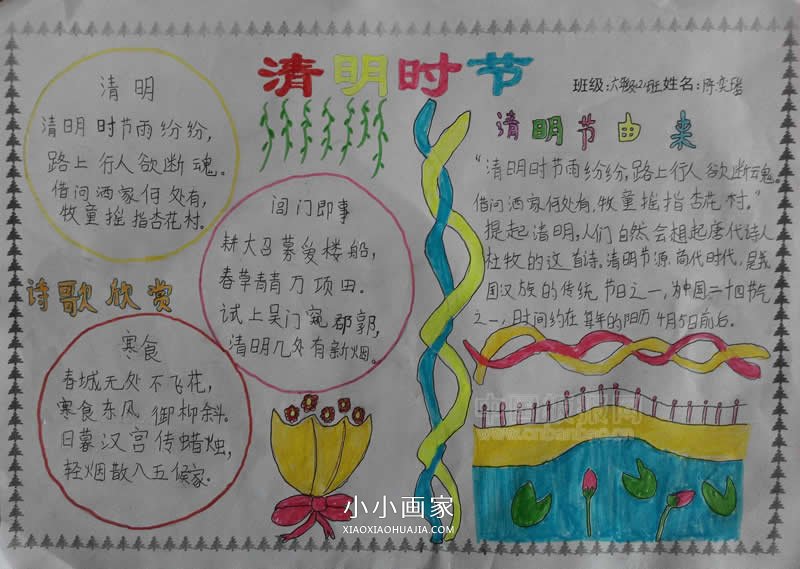 清明时节
班级:六年级2班 姓名:陈奕
清明
清明时节雨纷纷,
路上行人欲断魂。
借问洒家何处有,
牧童摇指杏花村.
诗歌欣赏
闾门即事
耕大召募爱楼船,
春草青青万项田.
试上吴门窥郡郭,
清明几处有新烟。
寒食
春城无处不飞花,
寒食东风御柳斜.
日暮汉宫传蜡烛,
轻烟散入五侯家.
清明节由来
"清明时节雨纷纷,路上行人欲断魂。
借问洒家何处有,牧童摇指杏花村."
提起清明,人们自然会想起唐代诗人
杜牧的这首诗.清明节源
国汉族的传统节日之一,为中国二十四节气
之一,时间约在每年的阳历4月5日前后.
www.cnbanbao.cn
小小画家
XIAOXIAOHUAJIA.COM